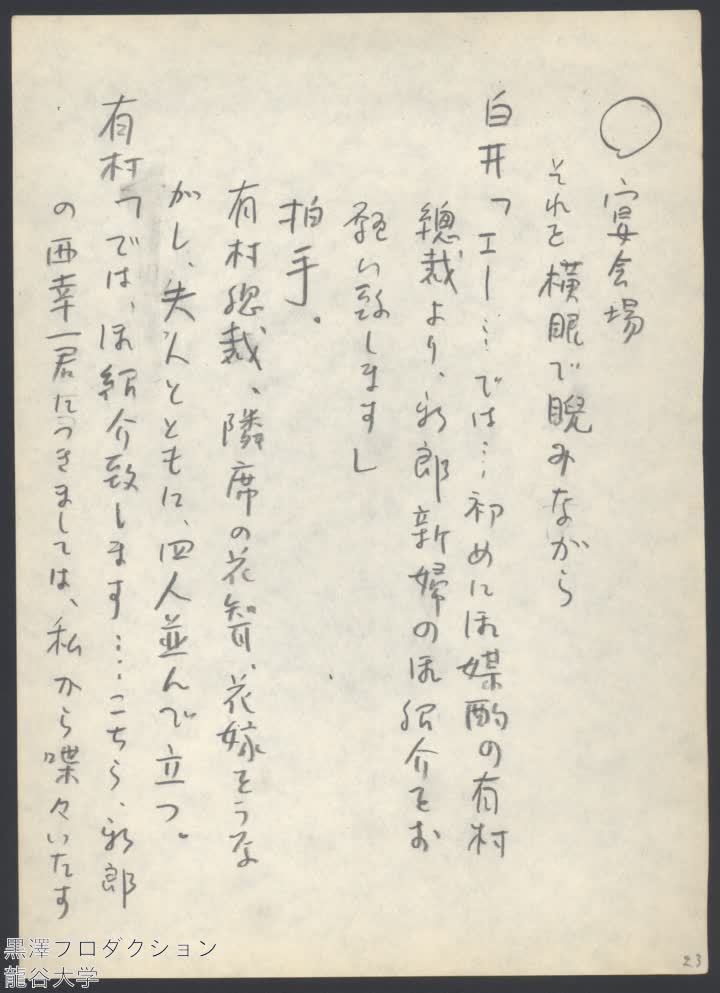 ○ 宴会場
それを横眼で睨みながら
白井「エー…では…初めに御媒酌の有村
總裁より、新郎新婦の御紹介をお
願い致します」
拍手。
有村總裁、隣席の花婿、花嫁をうな
がし、夫人とともに、四人並んで立つ。
有村「では、御紹介致します…こちら、新郎
の西幸一君につきましては、私から喋々いたす
23
黒澤プロダクション
龍谷大学